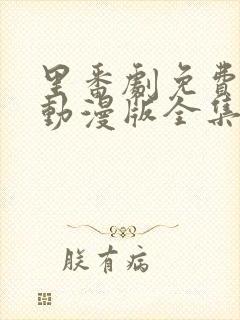 里番劇免費
動漫版全集
朕有病